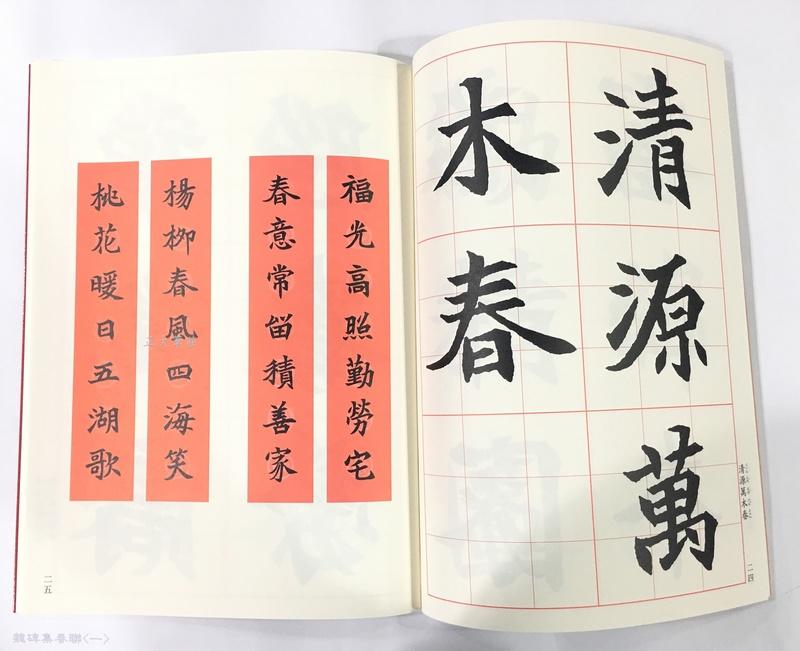 清源萬
木春
清源萬木春
二四
福光高照勤勞宅
春意常留積善家
楊柳春風四海笑
桃花暖日五湖歌
二五
魏碑集春聯<一>